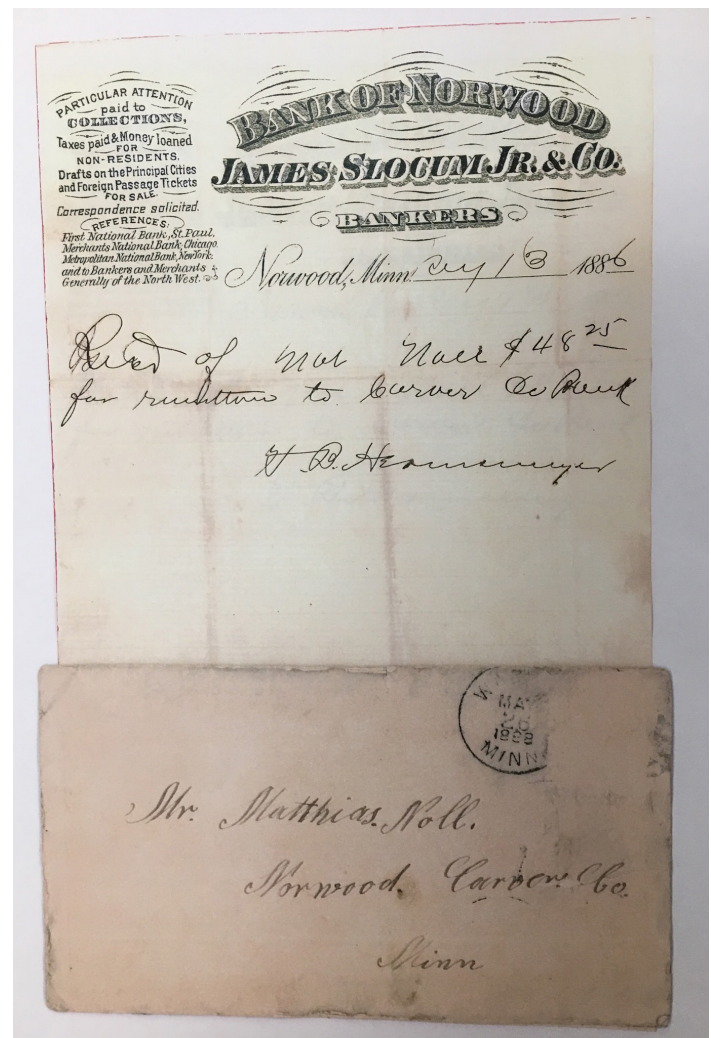 PARTICULAR ATTENTION
paid to
COLLECTIONS,
Taxes paid & Money loaned
FOR
NON-RESIDENTS.
Drafts on the Principal Cities
and Foreign Passage Tickets
FOR SALE.
Correspondence solicited.
REFERENCES:
First National Bank, St. Paul.
Merchants National Bank, Chicago.
Metropolitan National Bank, New York.
and to Bankers and Merchants
Generally of the North West.
BANK OF NORWOOD
JAMES SLOCUM, JR. & CO.
BANKERS
Norwood, Minn. 13 1886
Recd of Mat Noll $48 25
for remittance to Carver Co Bank
MAY
26
1888
MINN
Mr. Matthias. Noll.
Norwood. Carver. Co.
Minn